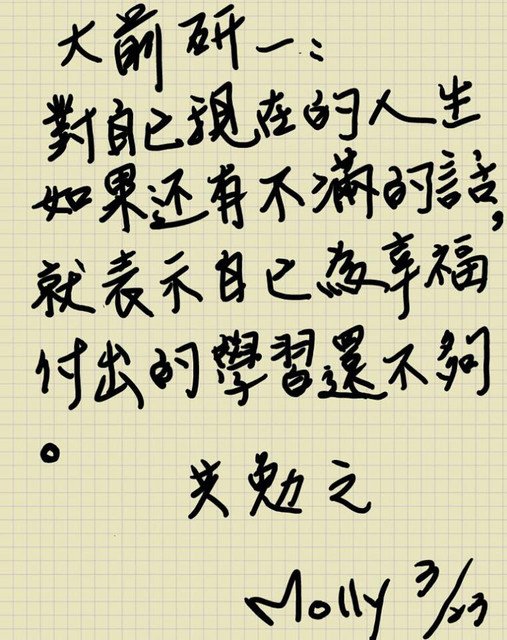 大前研一：
對自己現在的人生
如果还有不滿的話，
就表示自己為幸福
付出的學習還不夠
。
共勉之
Molly 3/23